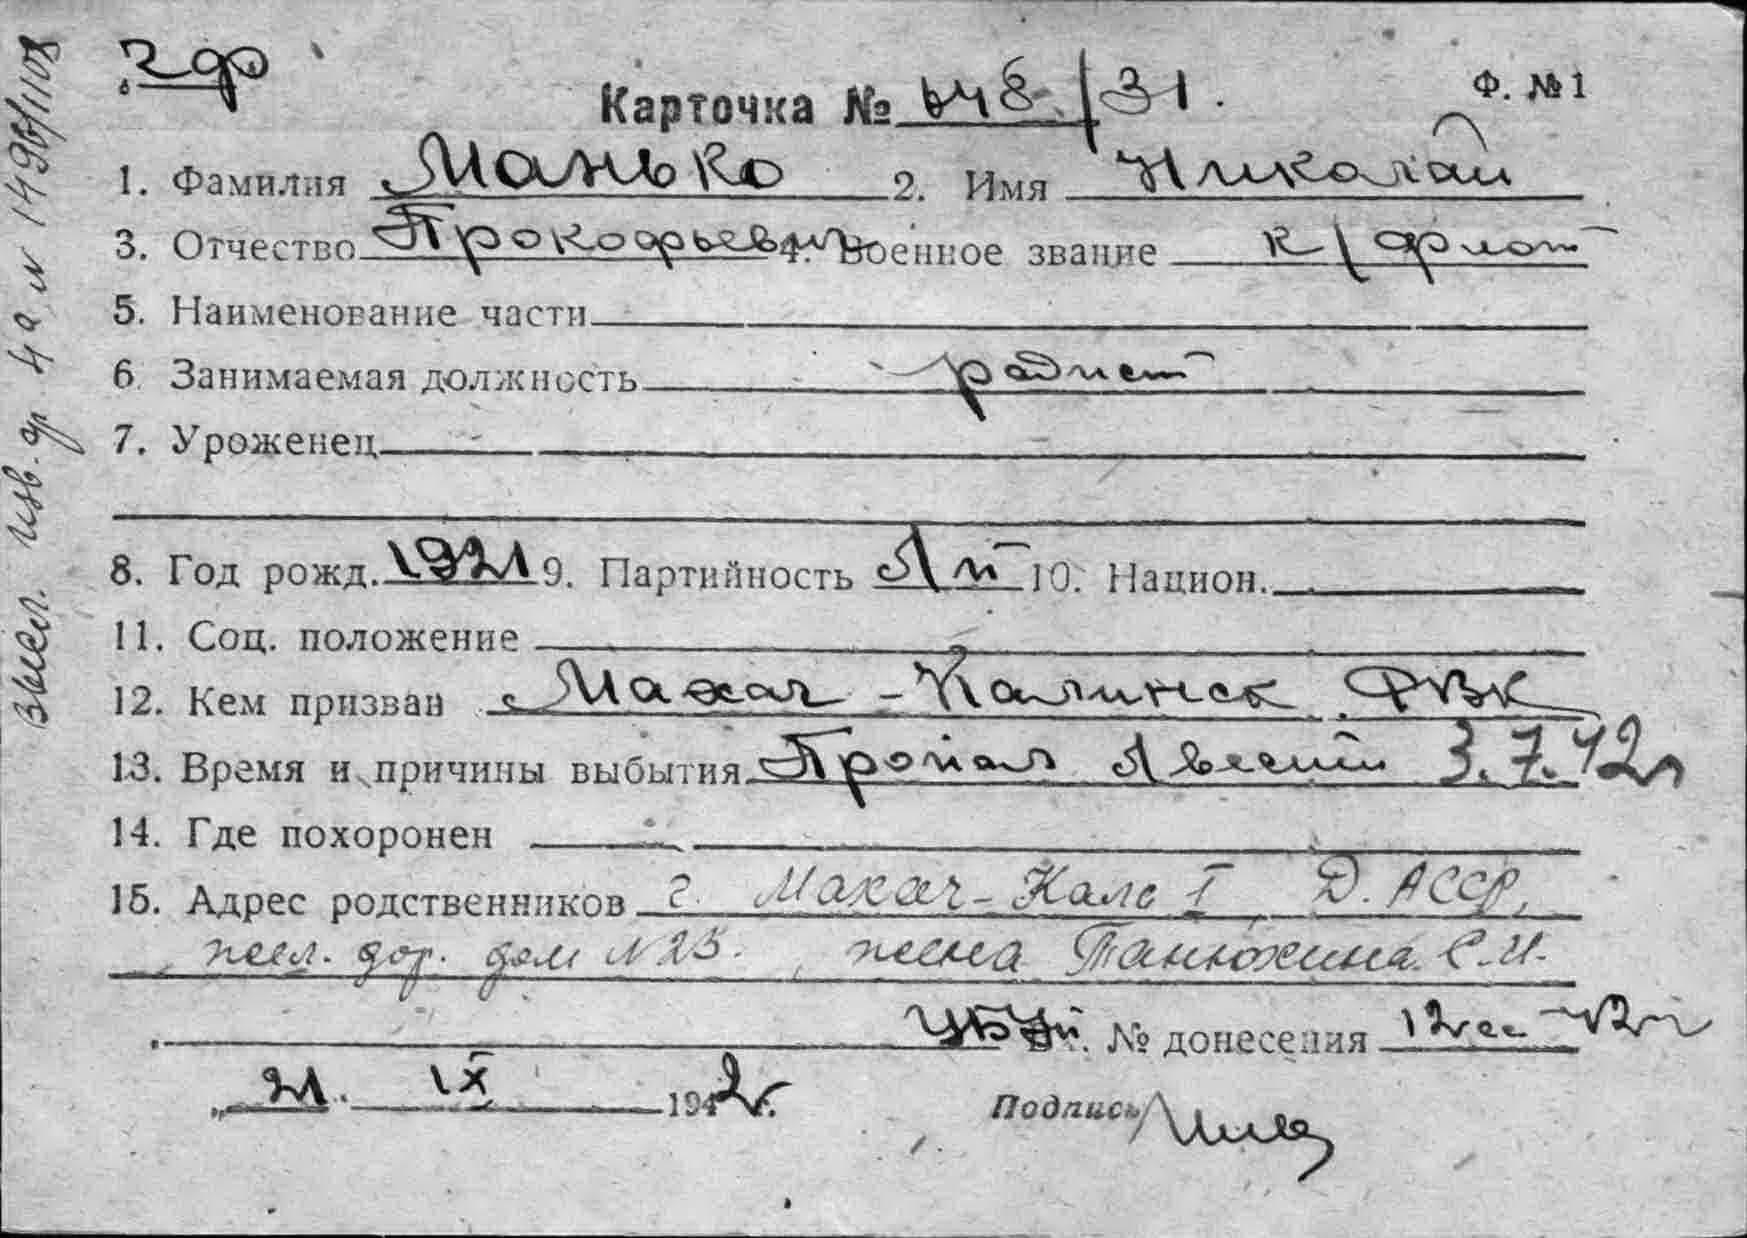 2 др
Карточка № 648/31.
Ф. №1
1. Фамилия Манько 2. Имя Николай
3. Отчество Прокофьевич 4. Военное звание к/флот
5. Наименование части
6 Занимаемая должность радист
7. Уроженец
8. Год рожд. 1921 9. Партийность 10. Национ.
11. Соц. положение
12. Кем призван Махач-Калинск РВК
13. Время и причины выбытия Пропал 3.7.42г
14. Где похоронен
15. Адрес родственников г. Махач-Кала I, Д. АССР,
жел. дор. дом №23., жена Танюхина С.И.
№ донесения 12сс-42г
"21. IX 1942г.
Подпись
Высл. изв. ф. 4а №